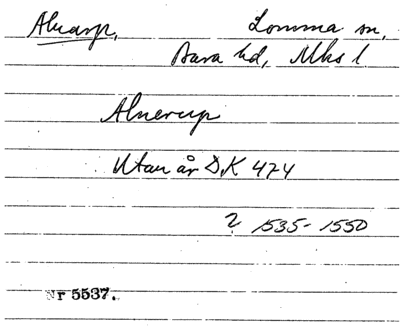 Alnarp, Lomma sn,
Bara hd, Mlhs l
Alnerup
Utan år D.K 474
? 1535-1550
Nr 5537.